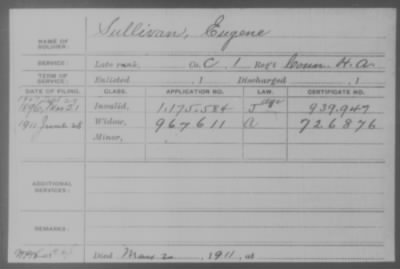 NAME OF SOLDIER: Sullivan, Eugene
SERVICE: Late rank, Co. C, 1 Reg't Conn. H. A.
TERM OF SERVICE: Enlisted , 1 Discharged , 1
DATE OF FILING. CLASS. APPLICATION NO. LAW. CERTIFICATE NO.
Invalid, 1.175.584 939.947
1911 Widow, 967611 A 726876
Minor,
ADDITIONAL SERVICES:
REMARKS:
Died Mar 2 , 1911, at